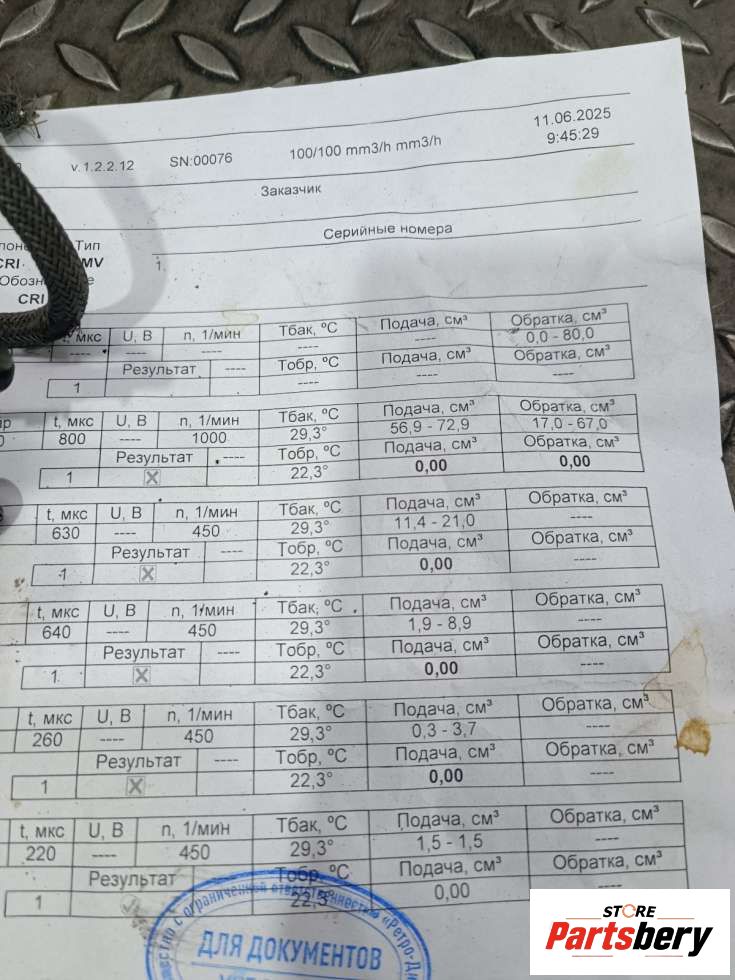 v.1.2.2.12 SN:00076 100/100 mm3/h mm3/h 11.06.2025
9:45:29
Заказчик
Тип Серийные номера
CRI MV 1.
CRI
мкс U, В n, 1/мин Тбак, ºС Подача, см³ Обратка, см³
---- ---- ---- ---- ---- 0,0 - 80,0
Результат ---- Тобр, ºС Подача, см³ Обратка, см³
1 ---- ---- ----
t, мкс U, В n, 1/мин Тбак, ºС Подача, см³ Обратка, см³
800 ---- 1000 29,3° 56,9 - 72,9 17,0 - 67,0
Результат ---- Тобр, ºС Подача, см³ Обратка, см³
1 X 22,3° 0,00 0,00
t, мкс U, В n, 1/мин Тбак, ºС Подача, см³ Обратка, см³
630 ---- 450 29,3° 11,4 - 21,0 ----
Результат ---- Тобр, ºС Подача, см³ Обратка, см³
1 X 22,3° 0,00 ----
t, мкс U, В n, 1/мин Тбак, ºС Подача, см³ Обратка, см³
640 ---- 450 29,3° 1,9 - 8,9 ----
Результат ---- Тобр, ºС Подача, см³ Обратка, см³
1 X 22,3° 0,00 ----
t, мкс U, В n, 1/мин Тбак, ºС Подача, см³ Обратка, см³
260 ---- 450 29,3° 0,3 - 3,7 ----
Результат ---- Тобр, ºС Подача, см³ Обратка, см³
1 X 22,3° 0,00 ----
t, мкс U, В n, 1/мин Тбак, ºС Подача, см³ Обратка, см³
220 ---- 450 29,3° 1,5 - 1,5 ----
Результат Тобр, ºС Подача, см³ Обратка, см³
1 22,3° 0,00 ----
с ограниченной ответственностью «Ретро-Ди
ДЛЯ ДОКУМЕНТОВ
STORE
Partsbery